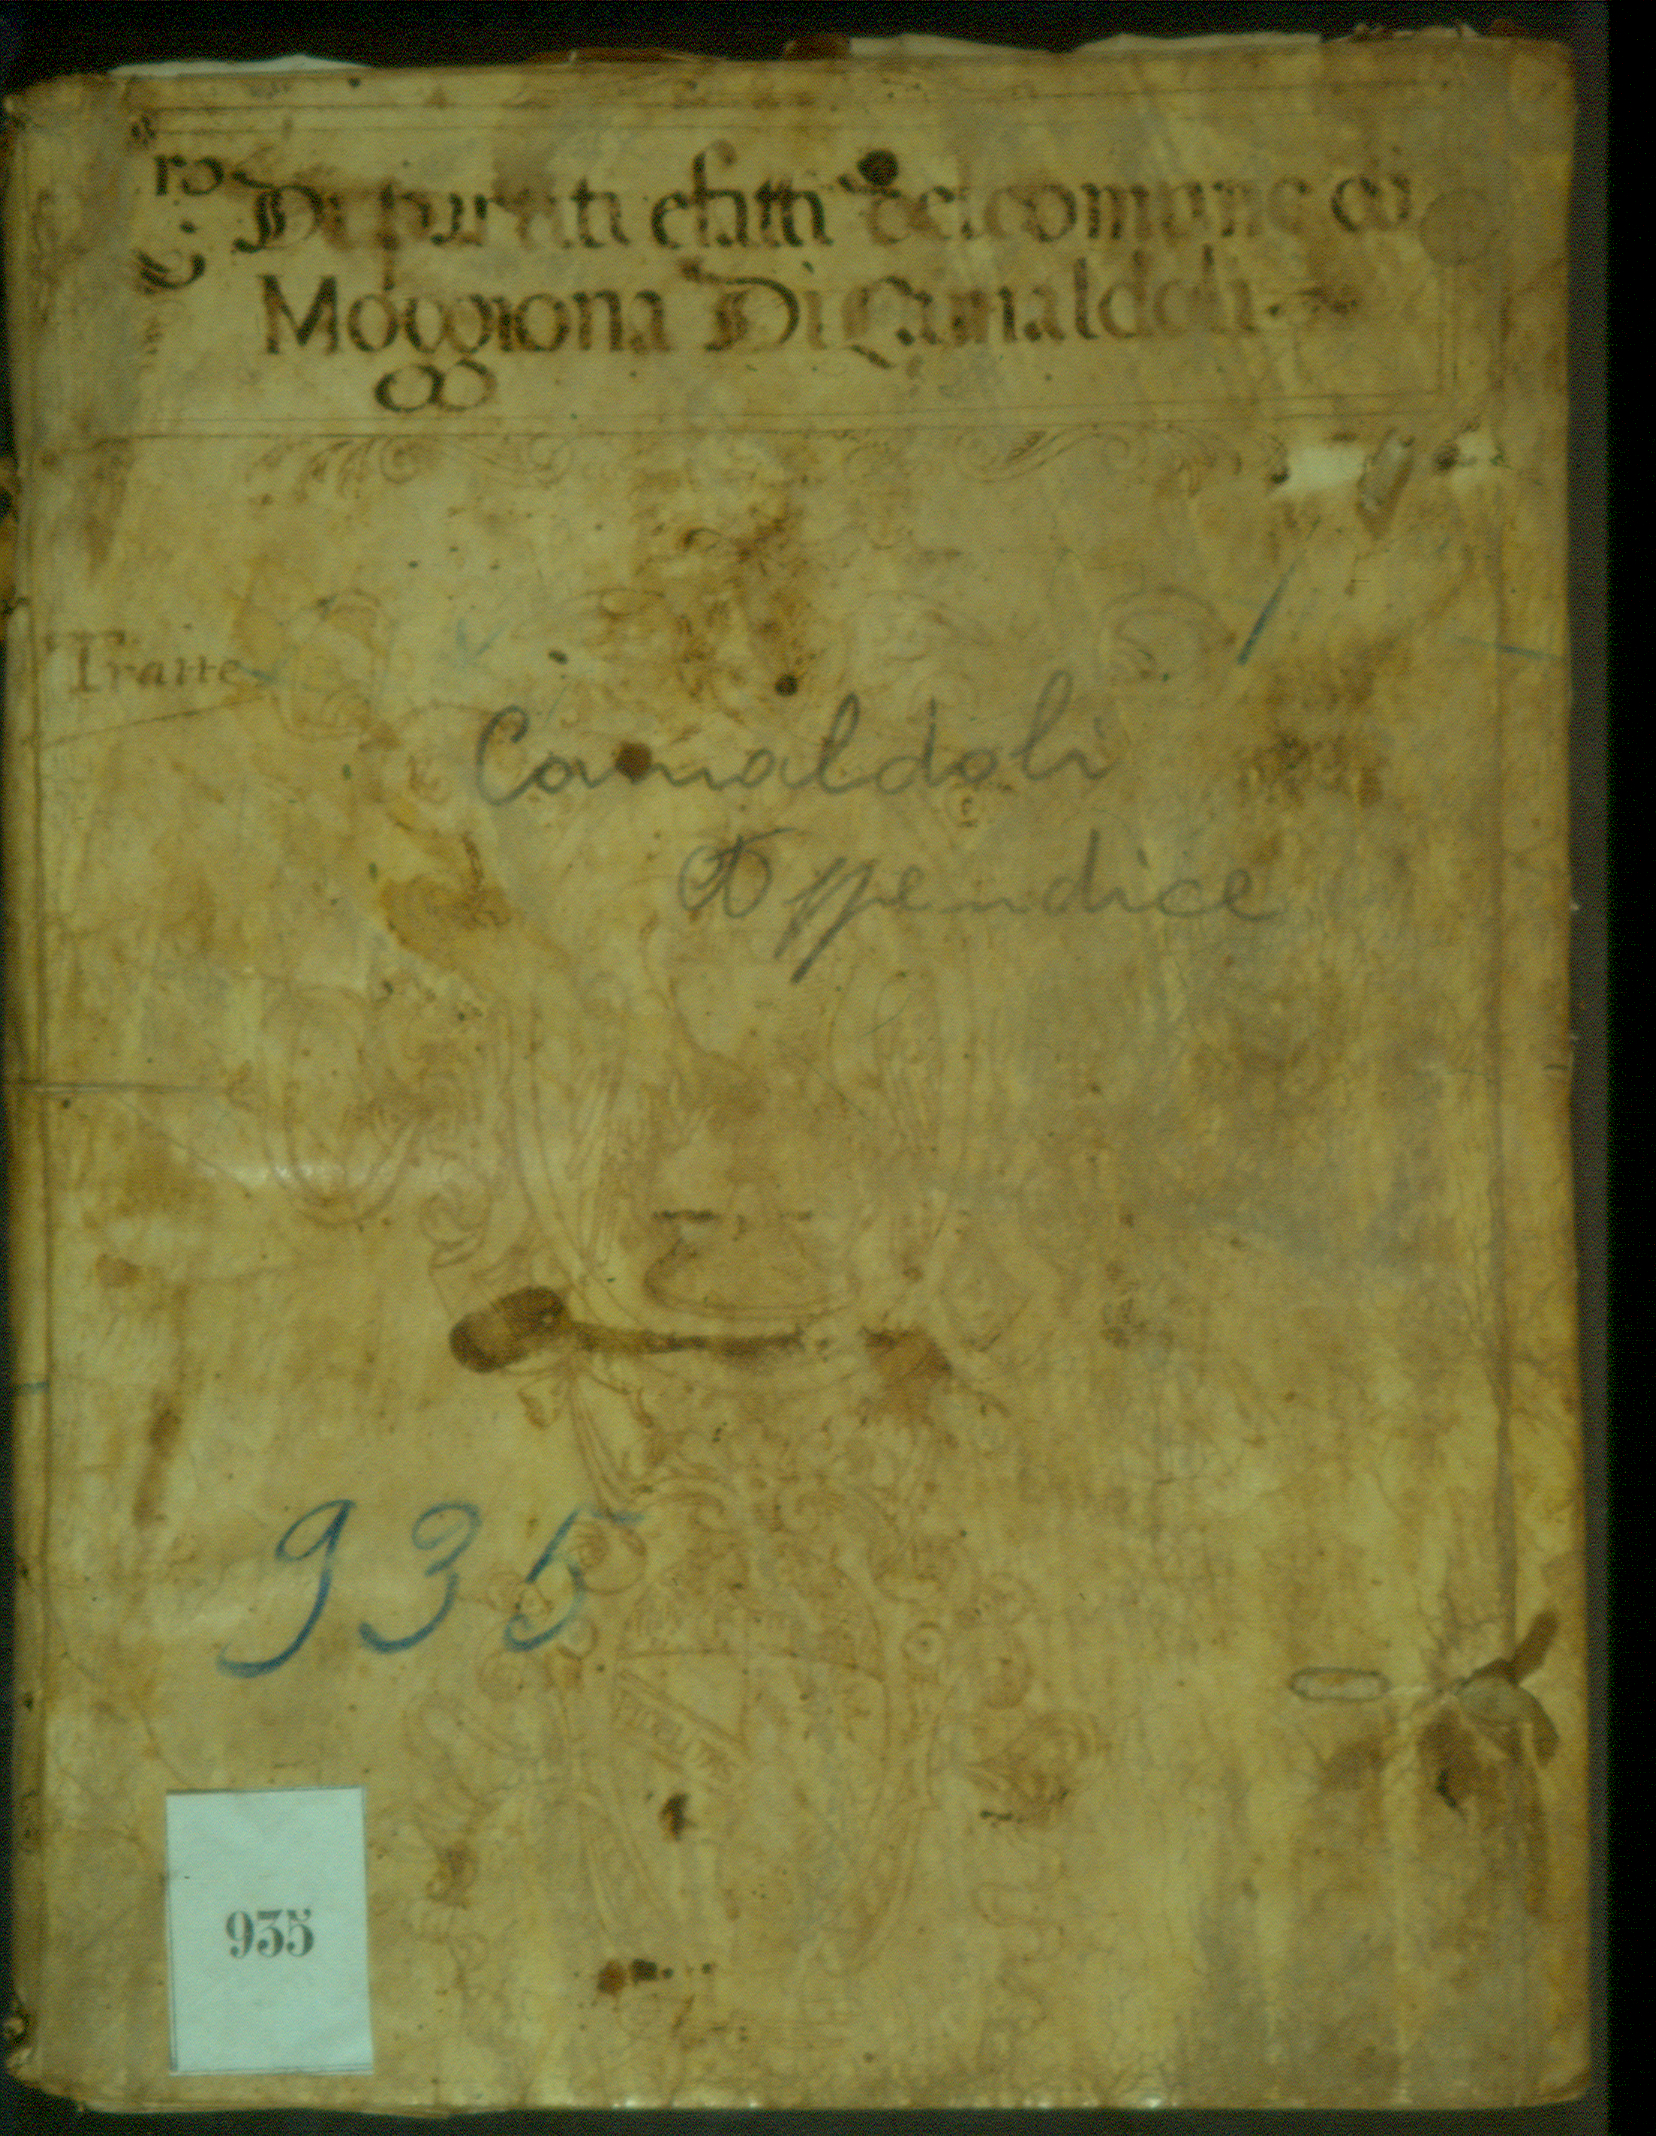 Di partiti e fatti del comune di
Moggiona Di Camaldoli
Tratte
Camaldoli
Appendice
935
935